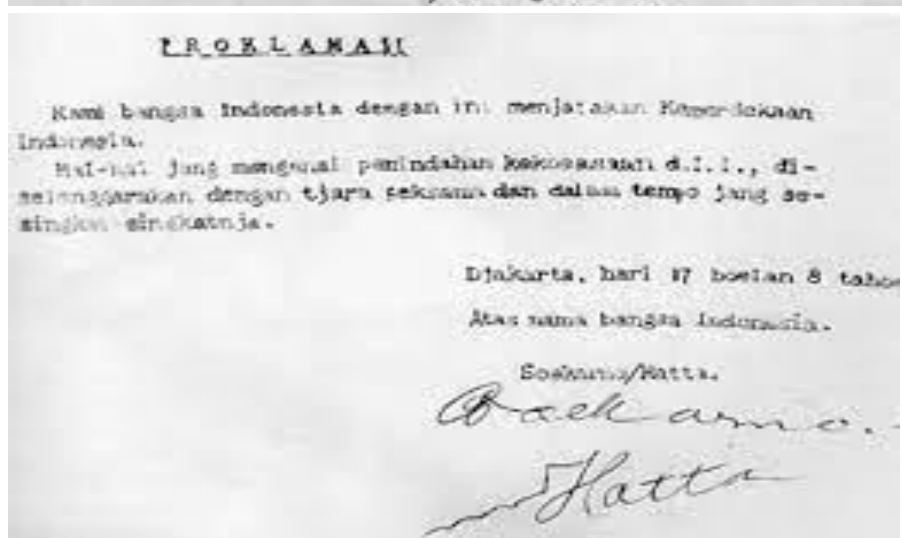 PROKLAMASI
Kami bangsa Indonesia dengan ini menjatakan Kemerdekaan
Indonesia.
Hal-hal jang mengenai pemindahan kekoeasaan d.l.l., di-
selenggarakan dengan tjara seksama dan dalam tempo jang se-
singkat-singkatnja.
Djakarta, hari 17 boelan 8 tahoe
Atas nama bangsa Indonesia.
Soekarno/Hatta.
Soekarno.
Hatta